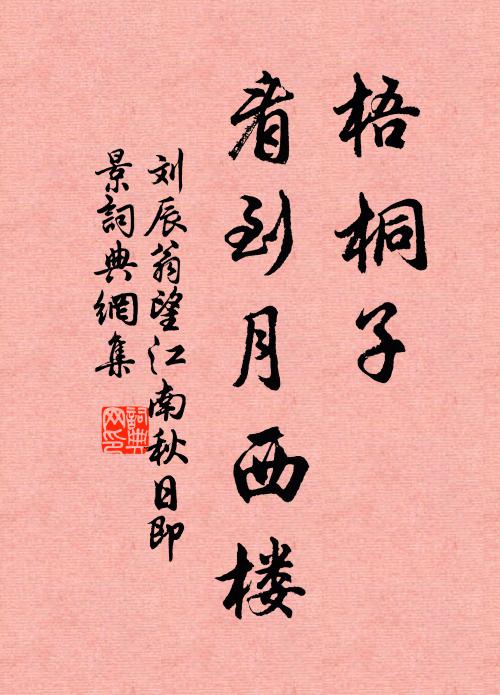 梧桐子
看到月西楼
刘辰翁望江南秋日即
景词典網集
詞典
网印